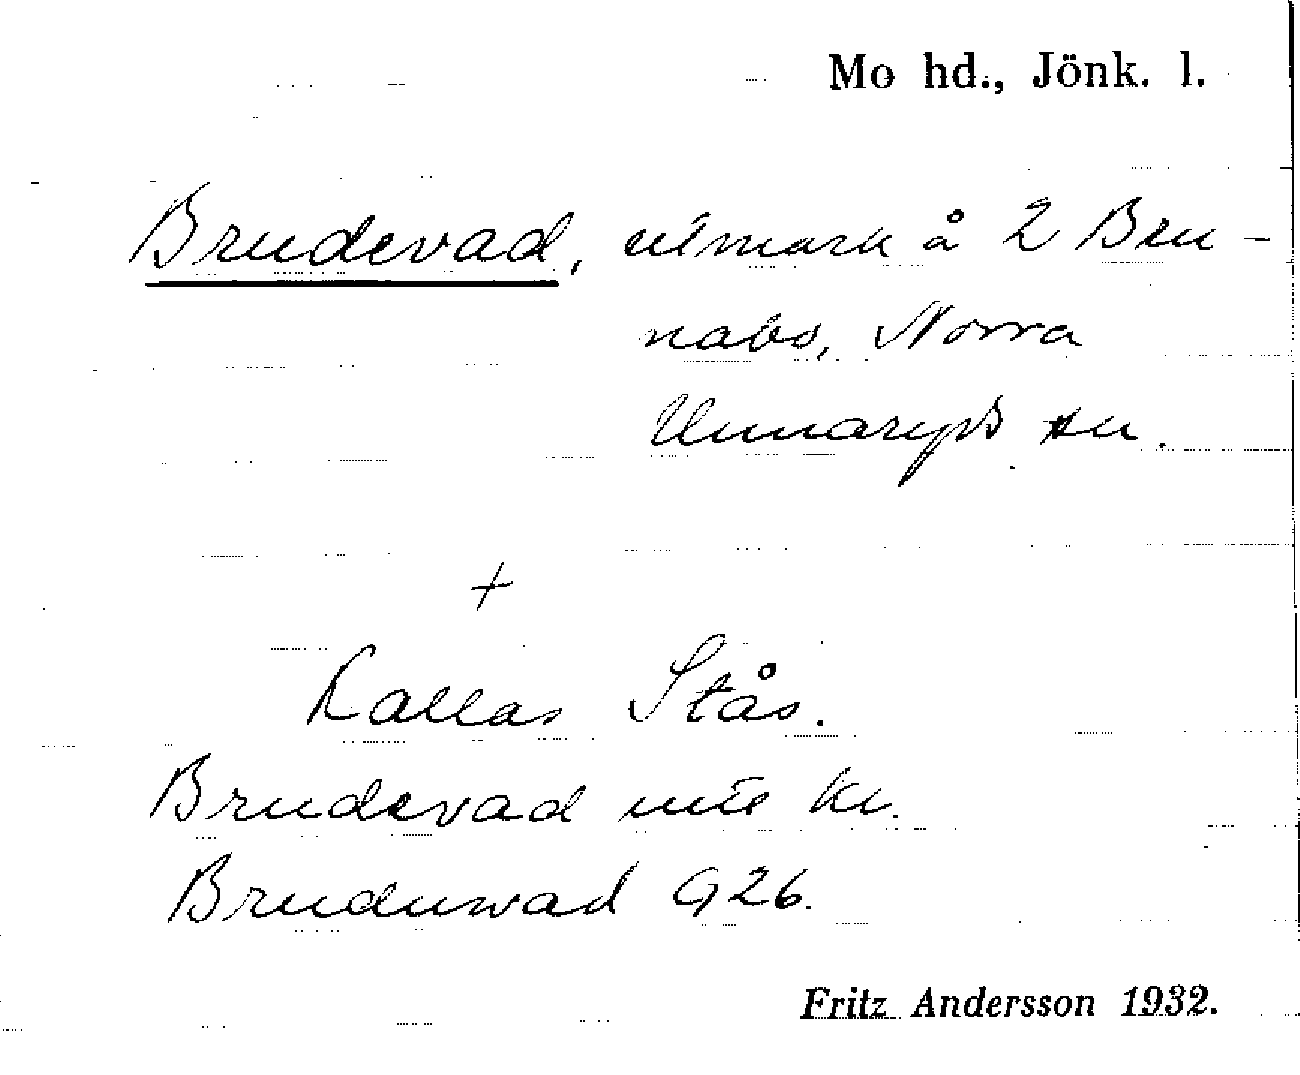 Mo hd., Jönk. l.
Brudevad, utmark å 2 Bru-
nabo, Norra
Unnaryds sn.
+
Kallas Stås.
Brudevad utē kv.
Bruduwad G26.
Fritz Andersson 1932.